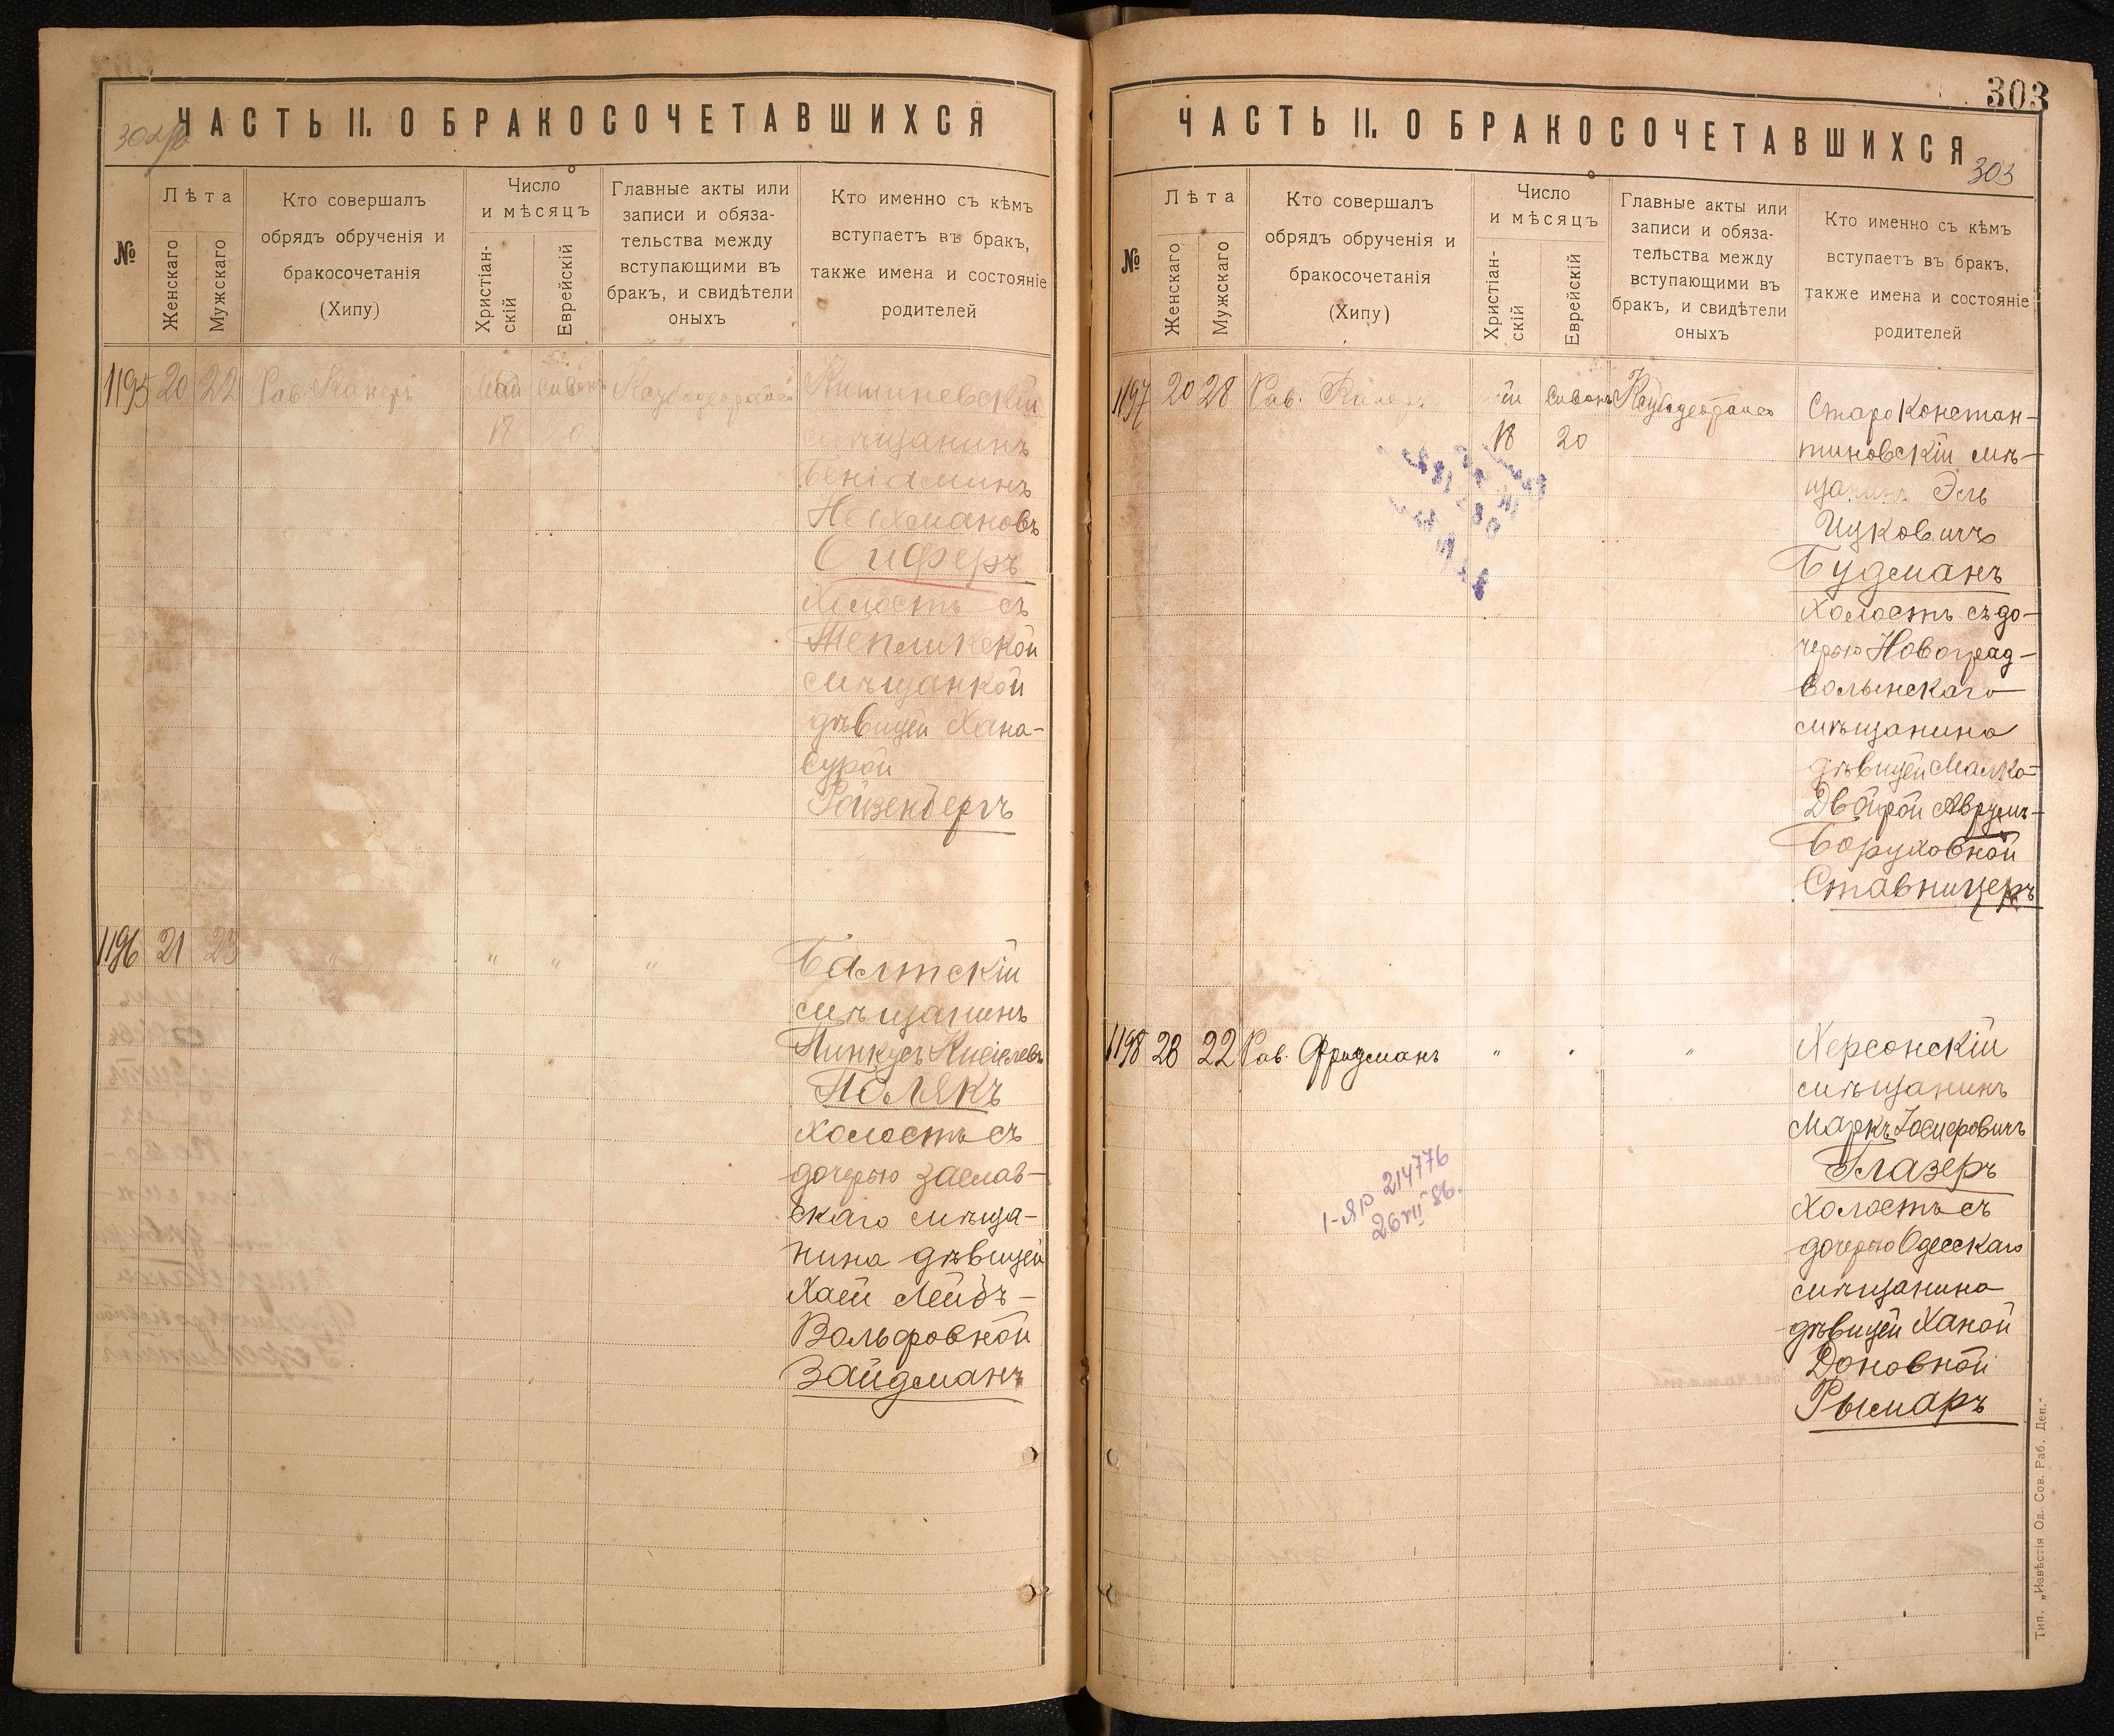 ЧАСТЬ II. О БРАКОСОЧЕТАВШИХСЯ
№
Лѣта
Женскаго
Мужскаго
Кто совершалъ
обрядъ обрученія и
бракосочетанія
(Хипу)
Число
и мѣсяцъ
Христіан-
скій
Еврейскій
Главные акты или
записи и обяза-
тельства между
вступающими въ
бракъ, и свидѣтели
оныхъ
Кто именно съ кѣмъ
вступаетъ въ бракъ,
также имена и состояніе
родителей
1195 20 22 Рав. Май Сивонъ
18
Кишиневскій
мѣщанинъ
Беніаминъ
Нахмановъ
Сиферъ
холостъ съ
Тепликской
мѣщанкой
дѣвицей Хана-
Сурой
Ройзенбергъ
1196 21 23 " " " "
Балтскій
мѣщанинъ
Пинкусъ
Полякъ
холостъ съ
дочерью Заслав-
скаго мѣща-
нина дѣвицей
Хаей Лейбъ-
Вольфовной
Зайдманъ
303
ЧАСТЬ II. О БРАКОСОЧЕТАВШИХСЯ
303
№
Лѣта
Женскаго
Мужскаго
Кто совершалъ
обрядъ обрученія и
бракосочетанія
(Хипу)
Число
и мѣсяцъ
Христіан-
скій
Еврейскій
Главные акты или
записи и обяза-
тельства между
вступающими въ
бракъ, и свидѣтели
оныхъ
Кто именно съ кѣмъ
вступаетъ въ бракъ,
также имена и состояніе
родителей
1197 20 28 Рав. Сивонъ
18 20
Староконстан-
тиновскій мѣ-
щанинъ Эль
Ицковичъ
Будманъ
холостъ съ до-
черью Новоград-
Волынскаго
мѣщанина
дѣвицей Малка-
Двойрой Аврумъ-
Боруховной
Ставницеръ
1198 28 22 Рав. Фридманъ " " "
Херсонскій
мѣщанинъ
Маркъ Іосифовичъ
Глазеръ
холостъ съ
дочерью Одесскаго
мѣщанина
дѣвицей Ханой
Доновной
Рымаръ
I-ЯР 214776
26 VII 86.
Тип. „Извѣстія Од. Сов. Раб. Деп."